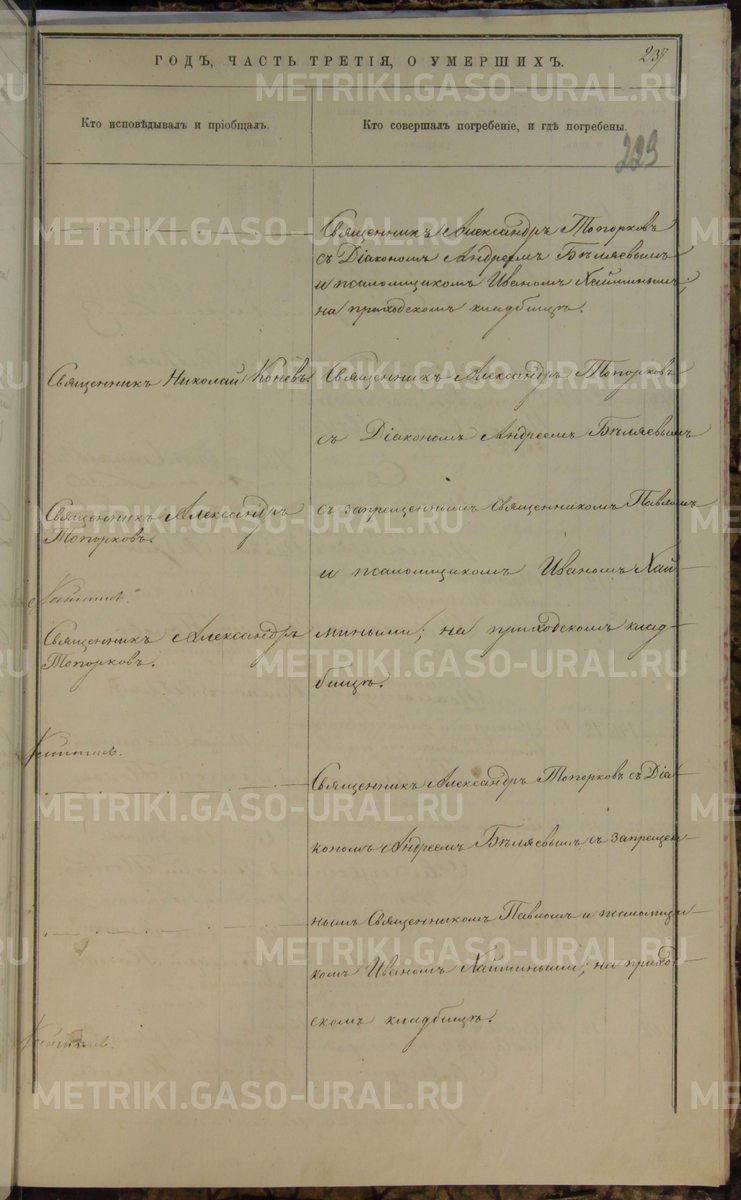 ГОДЪ, ЧАСТЬ ТРЕТІЯ, О УМЕРШИХЪ.
237
Кто исповѣдывалъ и пріобщалъ.
Кто совершалъ погребеніе, и гдѣ погребены.
223
Священникъ Александръ Топорковъ
съ Діакономъ Андреемъ Бѣляевымъ
и псаломщикомъ Иваномъ Хайминымъ;
на приходскомъ кладбищѣ.
Священникъ Николай Коневъ.
Священникъ Александръ Топорковъ
съ Діакономъ Андреемъ Бѣляевымъ
Священникъ Александръ
Топорковъ.
съ запрещеннымъ священникомъ Павломъ
и псаломщикомъ Иваномъ Хай-
Священникъ Александръ
Топорковъ.
миными; на приходскомъ клад-
бищѣ.
Священникъ Александръ Топорковъ съ Діа-
кономъ Андреемъ Бѣляевымъ съ запрещен-
нымъ Священникомъ Павломъ и псаломщи-
комъ Иваномъ Хаймиными; на приход-
скомъ кладбищѣ.
METRIKI.GASO-URAL.RU